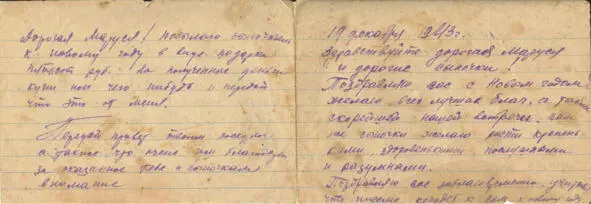 Дорогая Маруся! посылаю сыночкам
к новому году в виде подарка
пятьсот руб. На полученные деньги
купи кое чего нибудь и передай
что это от меня.
Передай привет твоим
а также что очень им благодарен
за оказанное тебе и сыночкам
внимание
19 декабря 1943 г.
Здравствуйте дорогая Маруся
и дорогие сыночки!
Поздравляю вас с Новым годом
желаю всех лучших благ, а также
скорейшей нашей встречи. вам
же сыночки желаю расти крепень-
кими здоровенькими послушными
и разумными.
Поздравляю вас заблаговременно учитывая
что письмо к вам к новому году